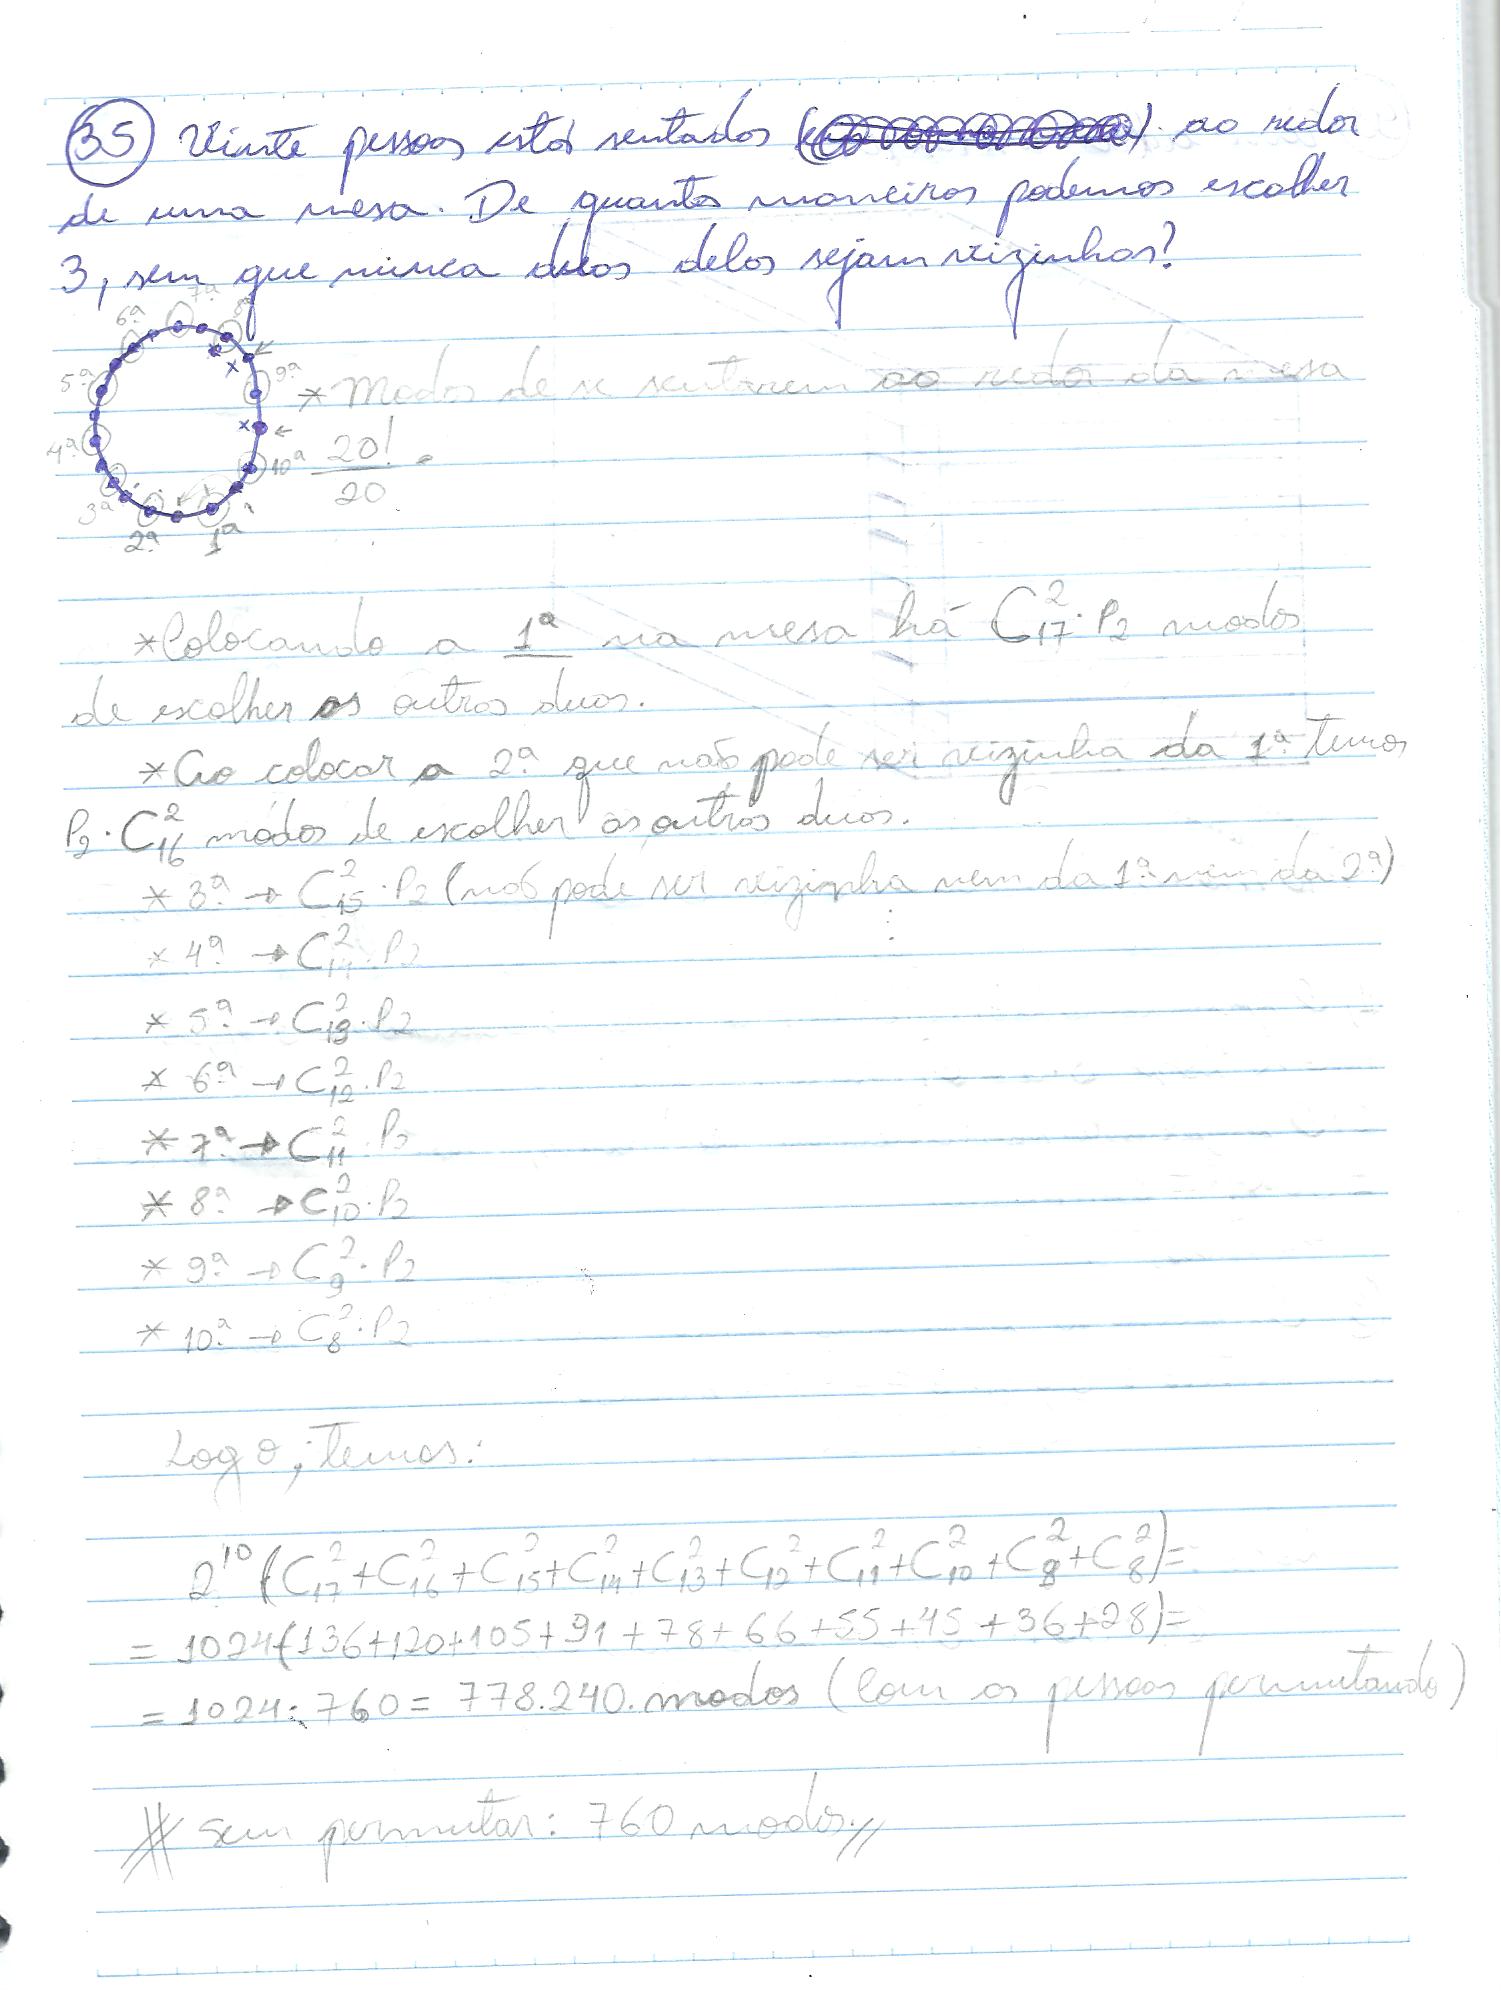 35 Vinte pessoas estão sentadas ao redor
de uma mesa. De quantas maneiras podemos escolher
3, sem que nunca duas delas sejam vizinhas?
7ª
6ª 8ª
5ª 9ª * Modos de se sentarem ao redor da mesa
4ª 10ª 20!/20
3ª
2ª 1ª
* Colocando a 1ª na mesa há C²₁₇·P₂ modos
de escolher as outras duas.
* Ao colocar a 2ª que não pode ser vizinha da 1ª temos
P₂·C²₁₆ modos de escolher as outras duas.
* 3ª → C²₁₅·P₂ (não pode ser vizinha nem da 1ª nem da 2ª)
* 4ª → C²₁₄·P₂
* 5ª → C²₁₃·P₂
* 6ª → C²₁₂·P₂
* 7ª → C²₁₁·P₂
* 8ª → C²₁₀·P₂
* 9ª → C²₉·P₂
* 10ª → C²₈·P₂
Logo, temos:
2¹⁰(C²₁₇+C²₁₆+C²₁₅+C²₁₄+C²₁₃+C²₁₂+C²₁₁+C²₁₀+C²₉+C²₈)=
= 1024(136+120+105+91+78+66+55+45+36+28)=
= 1024·760 = 778.240 modos (com as pessoas permutando)
# sem permutar: 760 modos //